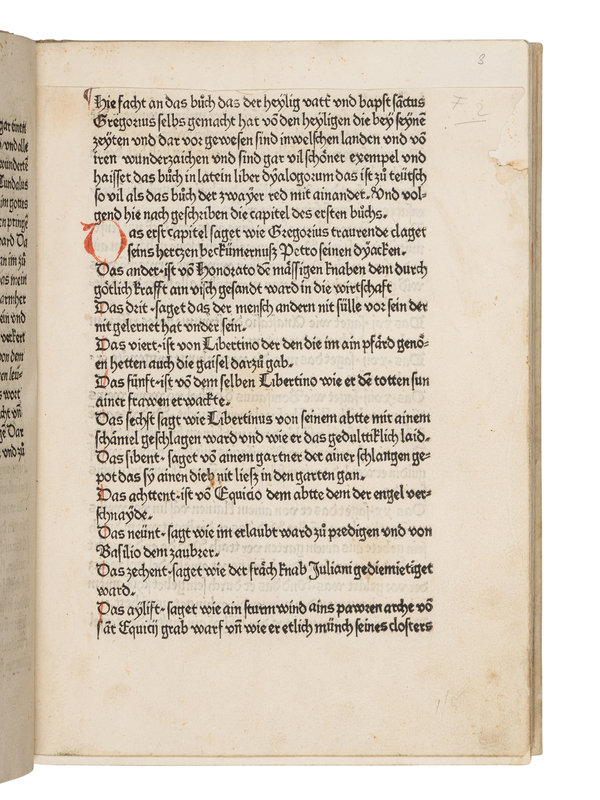 3
F 2
Hie facht an das bůch das der heylig vatt̃ vnd bapst sãctus
Gregorius selbs gemacht hat võ den heyligen die bey seynẽ
zeyten vnd dar vor gewesen sind in welschen landen vnd võ
iren wunderzaichen vnd sind gar vil schöner exempel vnd
haisset das bůch in latein liber dyalogorum das ist zů teütsch
so vil als das bůch der zwayer red mit ainander. Vnd vol-
gend hie nach geschriben die capitel des ersten bůchs.
Das erst capitel saget wie Gregorius traurende claget
seins hertzen bekümernusz Petro seinen dyacken.
Das ander·ist võ Honorato dẽ mässigen knaben dem durch
götlich krafft am visch gesandt ward in die wirtschaft
Das drit·saget das der mensch andern nit sülle vor sein der
nit gelernet hat vnder sein.
Das viert·ist von Libertino der den die im ain pfärd genö-
en hetten auch die gaisel darzů gab.
Das fünft·ist võ dem selben Libertino wie er dẽ totten sun
ainer frawen erwackte.
Das sechst sagt wie Libertinus von seinem abtte mit ainem
schämel geschlagen ward vnd wie er das gedultiklich laid.
Das sibent·saget võ ainem gartner der ainer schlangen ge-
pot das sy ainen dieb nit liesz in den garten gan.
Das achttent·ist võ Equicio dem abtte dem der engel ver-
schnayde.
Das neünt·sagt wie im erlaubt ward zů predigen vnd von
Basilio dem zaubrer.
Das zechent·saget wie der fräch knab Juliani gediemietiget
ward.
Das aylift·saget wie ain sturmwind ains pawren arche võ
sãt Equicij grab warf vñ wie er etlich münch seines closters